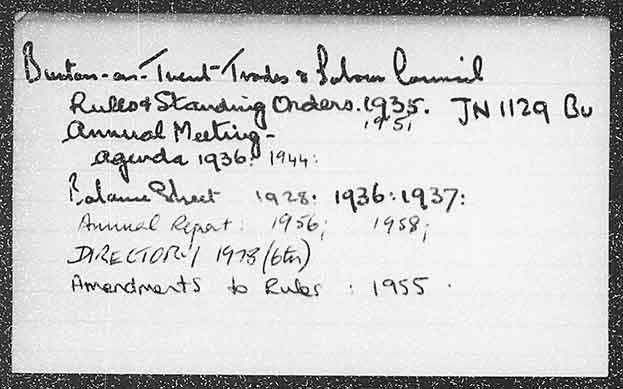 Burton-on-Trent Trades & Labour Council
Rules & Standing Orders. 1935. JN 1129 Bu
1951
Annual Meeting -
agenda 1936: 1944:
Balance Sheet 1928. 1936: 1937:
Annual Report: 1956; 1958;
DIRECTORY 1978 (6th)
Amendments to Rules : 1955 .